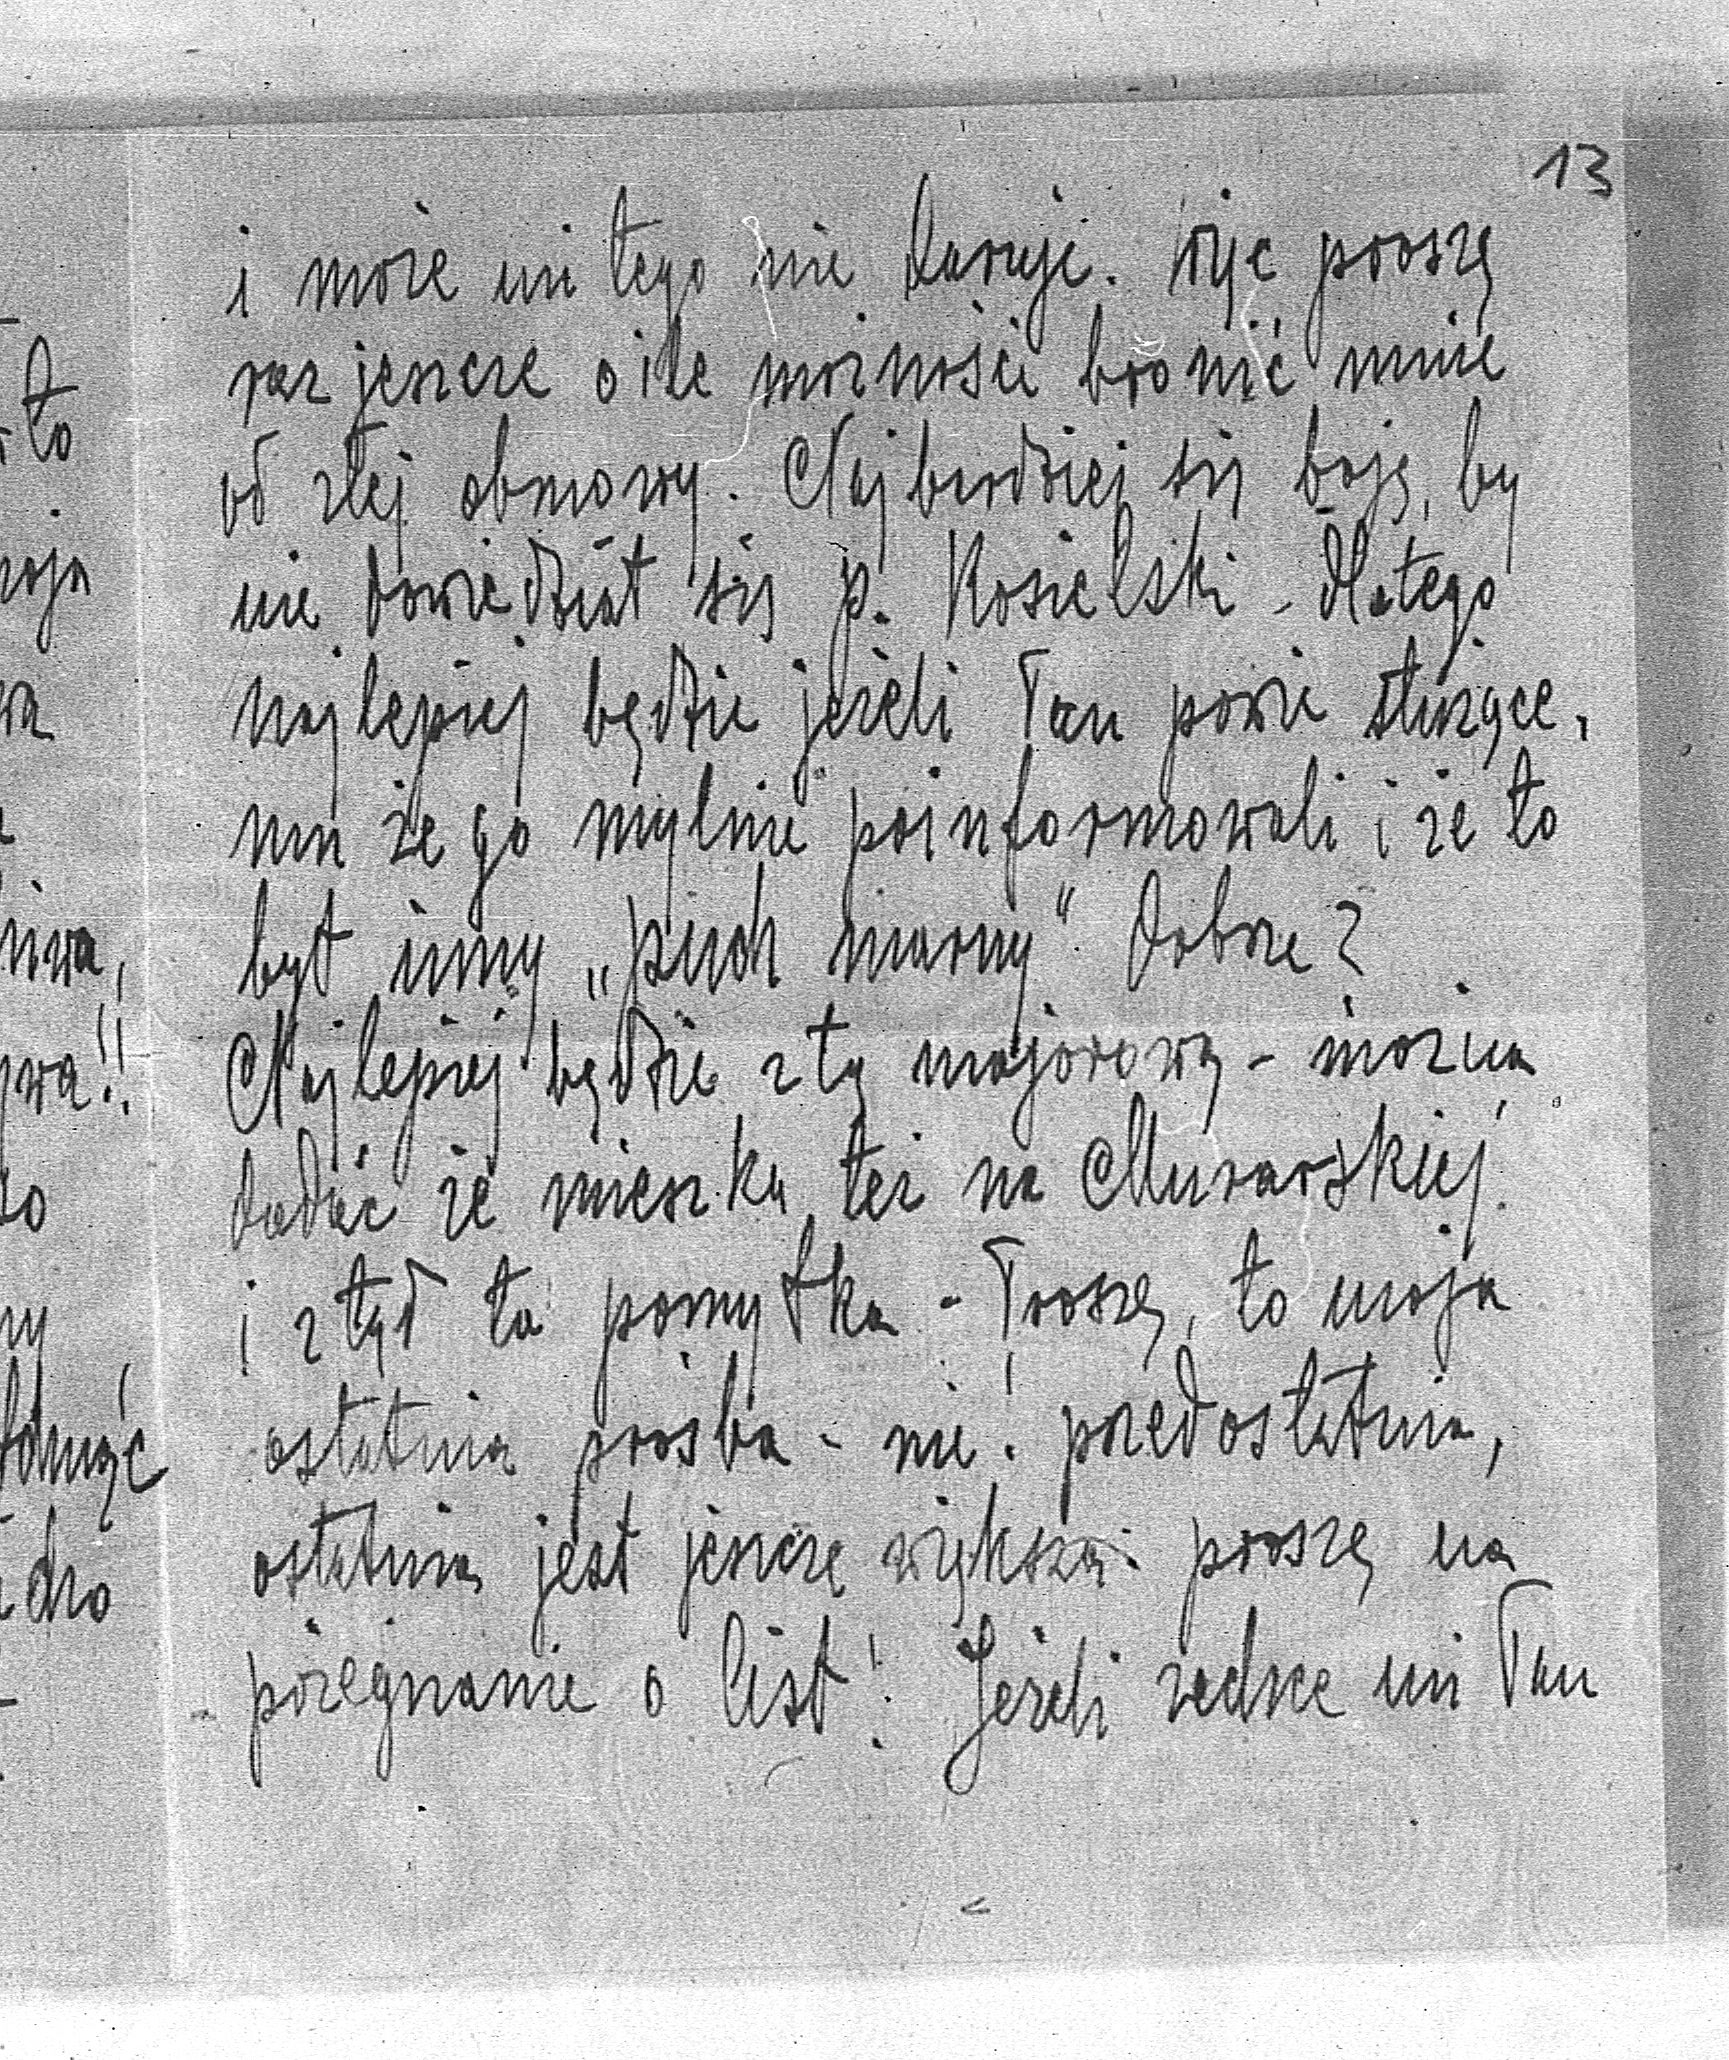 13
i może mi tego nie daruje. Więc proszę
raz jeszcze o ile możności bronić mnie
od złej obmowy. Najbardziej się boję, by
nie dowiedział się p. Kosielski - dlatego
najlepiej będzie jeżeli Pan powie służące-
mu że go mylnie poinformowali i że to
był inny „puch marny“. Dobrze?
Najlepiej będzie z tą majorową - można
dodać że mieszka też na Murarskiej
i ztąd ta pomyłka - Proszę, to moja
ostatnia prośba - nie! przedostatnia,
ostatnia jest jeszcze większa: proszę na
pożegnanie o list! Jeżeli zechce mi Pan